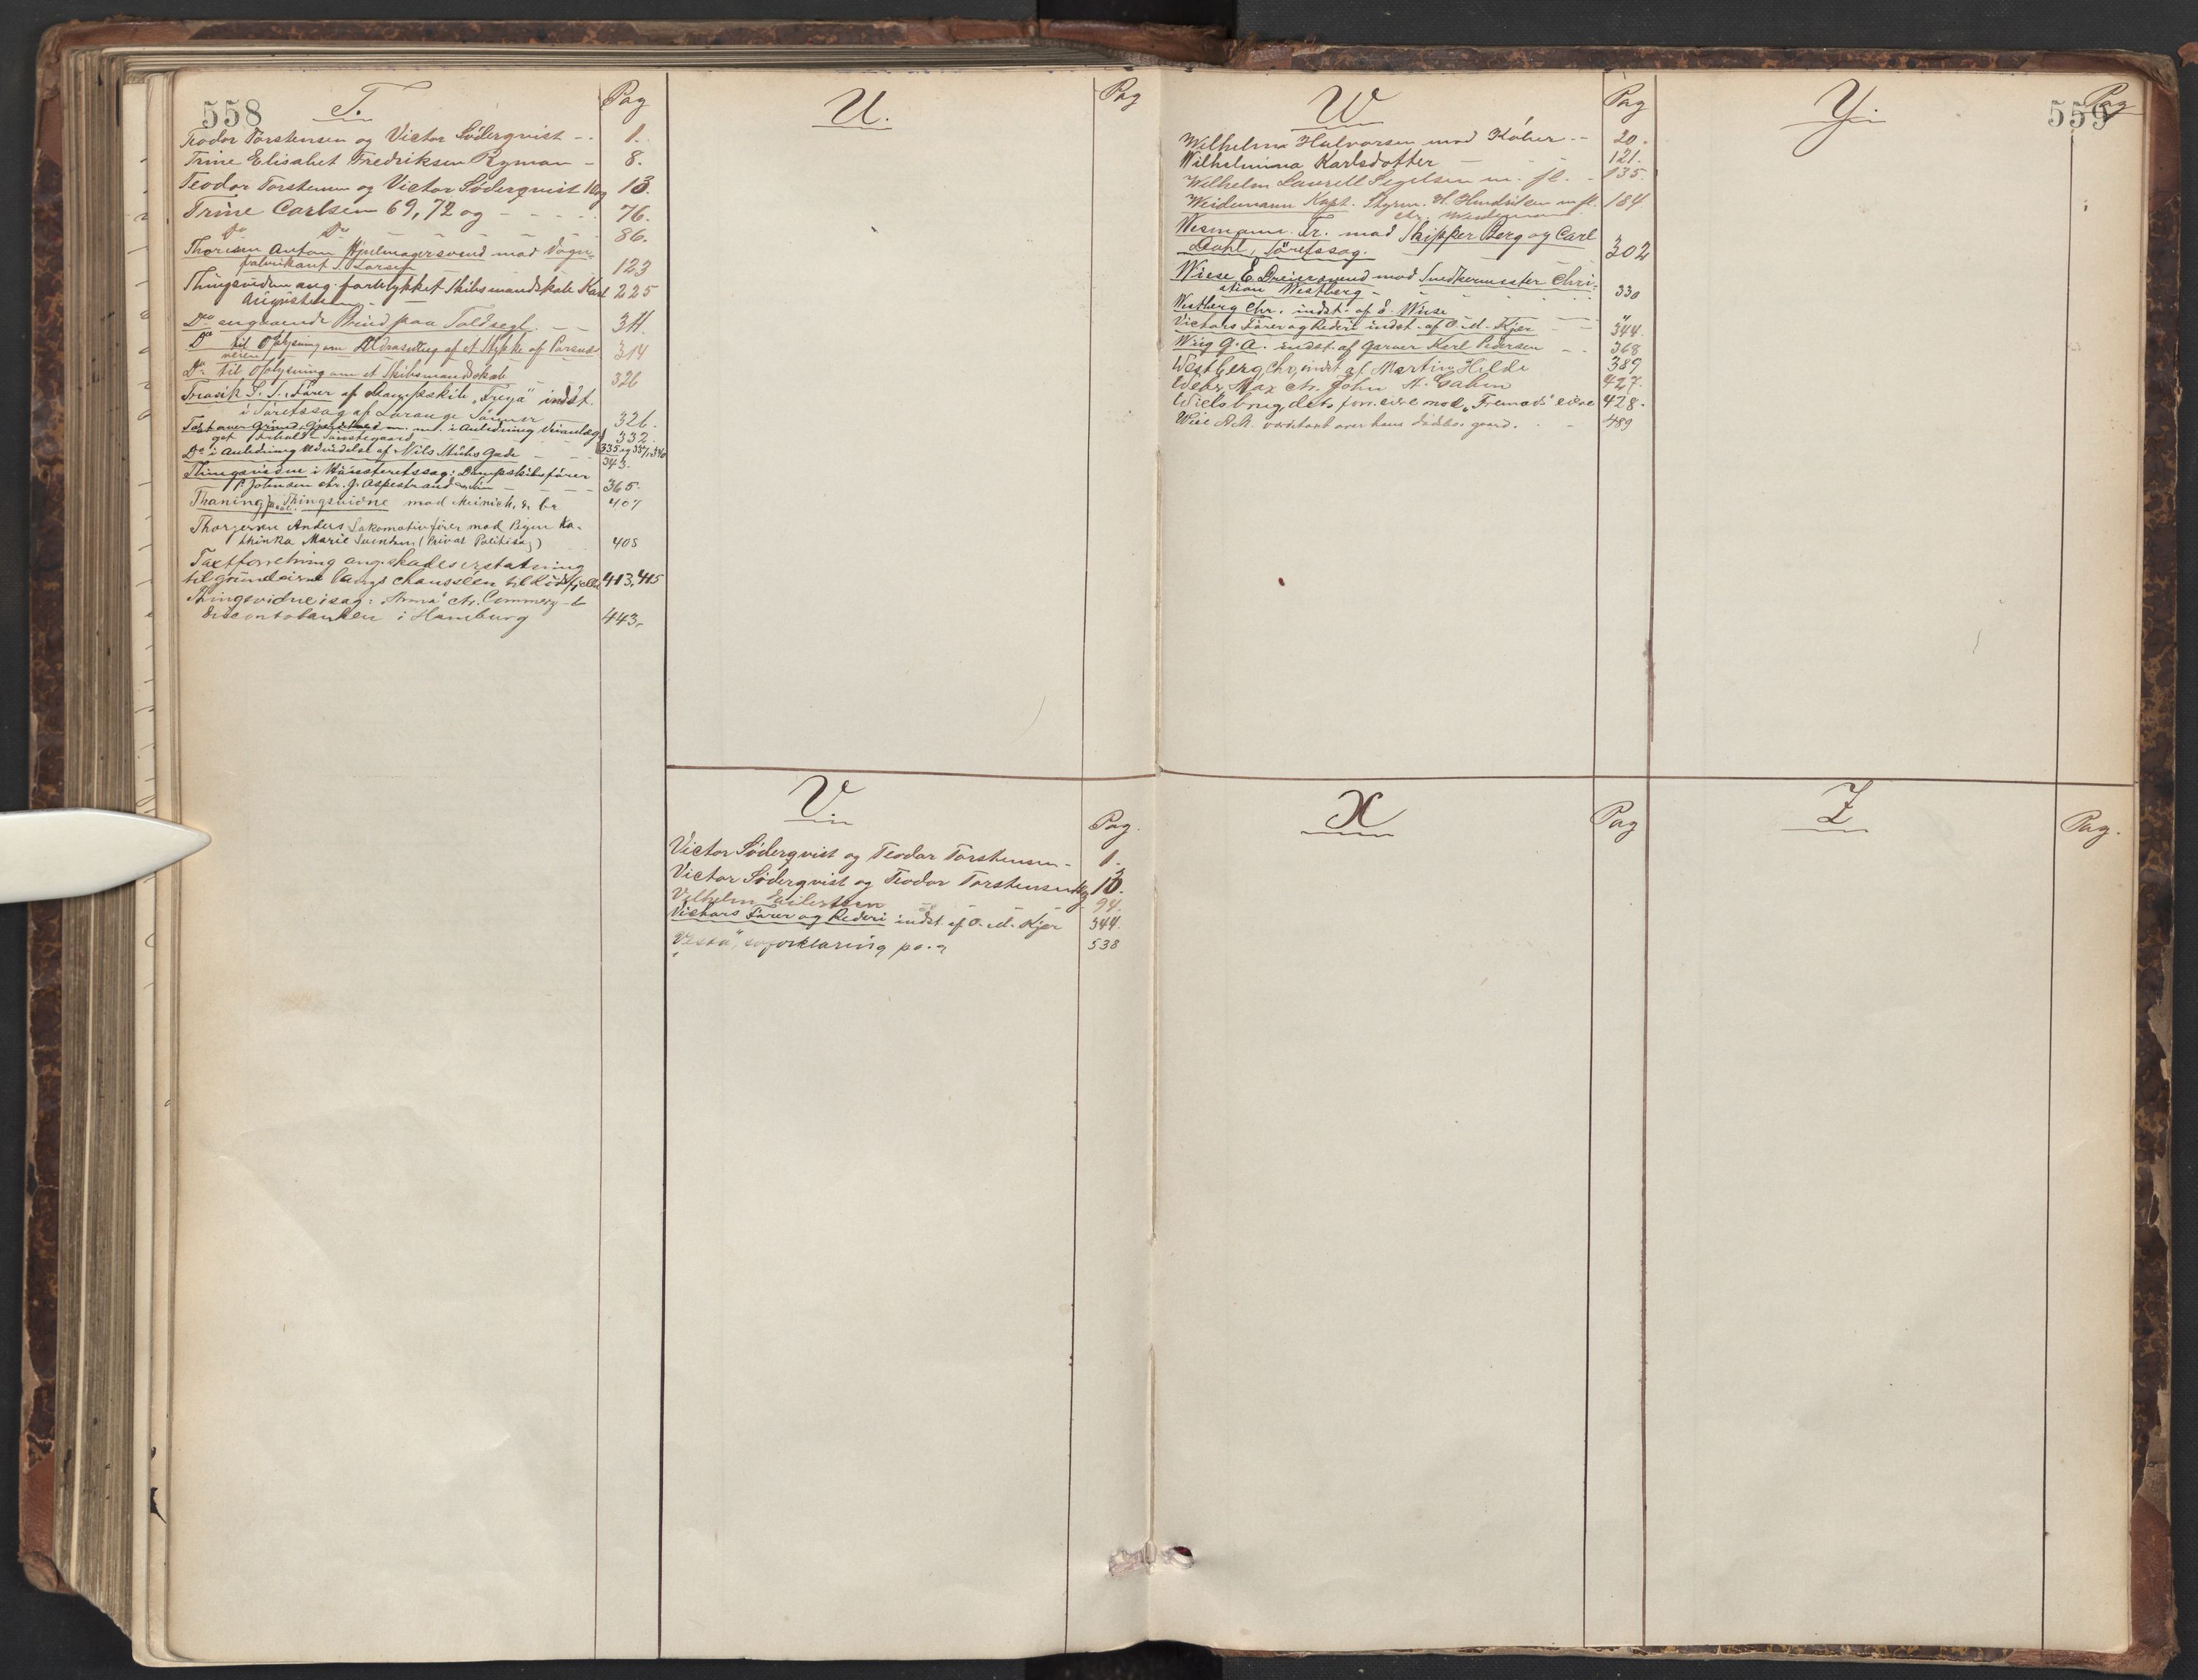 558
T.
Pag
Teodor Torstensen og Victor Söderqvist - 1.
Trine Elisabet Fredriksen Ryman - 8.
Teodor Torstensen og Victor Söderqvist 10 og 13.
Trine Carlsen 69, 72 og - - - - 76.
Do Do - - - - 86.
Thorisen Anton Hjulmagersvend mod Vogn-
fabrikant S. Larsen - - - 123
Thingsvidne ang. forulykket Skibsmandskab Karl 225
Augustesen -
Do angaaende Brud paa Toldsegl - - 311.
Do til Oplysning om Uddrasning af et Stykke af
veien 314
Do til Oplysning om et Skibsmandskab 326
S. T. Fører af Dampskib "Freya" indst.
i Søretssag af Lorange Sönner 326.
Taxt over Grund, m. m. i Anledning
get 332.
Do i Anledning Udvidelse af Nils Stubs Gade - 335 og 337, 340
343.
Thingsvidne i Dampskibsfører
P. Johnsen ctr. J. Aspestrand - - - 365.
Thaning Thingsvidne mod Minich & Co 407
Thorgersen Anders Lokomotivfører mod Pigen Ka-
thinka Marie Svendsen (Privat Politisag) 408
Taxtforretning ang. skadeserstatning
til grundeierne langs chausseen til Rödsfjellet 413, 415
Thingsvidne i sag: "Anna" ctr. Commerz- &
Discontobanken i Hamburg 443.
U.
Pag
V.
Pag.
Victor Söderqvist og Teodor Torstensen - 1.
Victor Söderqvist og Teodor Torstensen 10 og 13.
Vilhelm Eilertsen 94.
Victors Fører og Rederi indst. af O. M. Kjær 344.
"Vesta", søforklaring pag 538
559
W
Pag
Wilhelm Halvorsen mod Köher - - 20.
Wilhelmina Karlsdotter - - - 121.
Wilhelm Laurell Segelsen m. fl. - 135.
Weidemann Kapt. Styrm. H. Hendriksen m fl. 184
ctr. Weidemann
Wesmann Fr. mod Skipper Berg og Carl
Dahl, Søretssag. 302
Wiese E. Dreiersvend mod Snedkermester Chri-
stian Westberg - - - - 330
Westberg Chr. indst. af E. Wiese - "
Victors Fører og Rederi indst. af O. M. Kjær - 344.
Wiig G. A. indst. af Garver Karl Pedersen - 368
Westberg, Chr, indst af Martin Hilde 389
Weber, Max ctr. John A. Gahm 427.
Wielsbrug, dets forr. eiere mod "Fremads" eiere 428.
Wiese A. A. voldtakt over hans dødsbos gaard. - 489
Y.
Pag
X
Pag
Z
Pag.